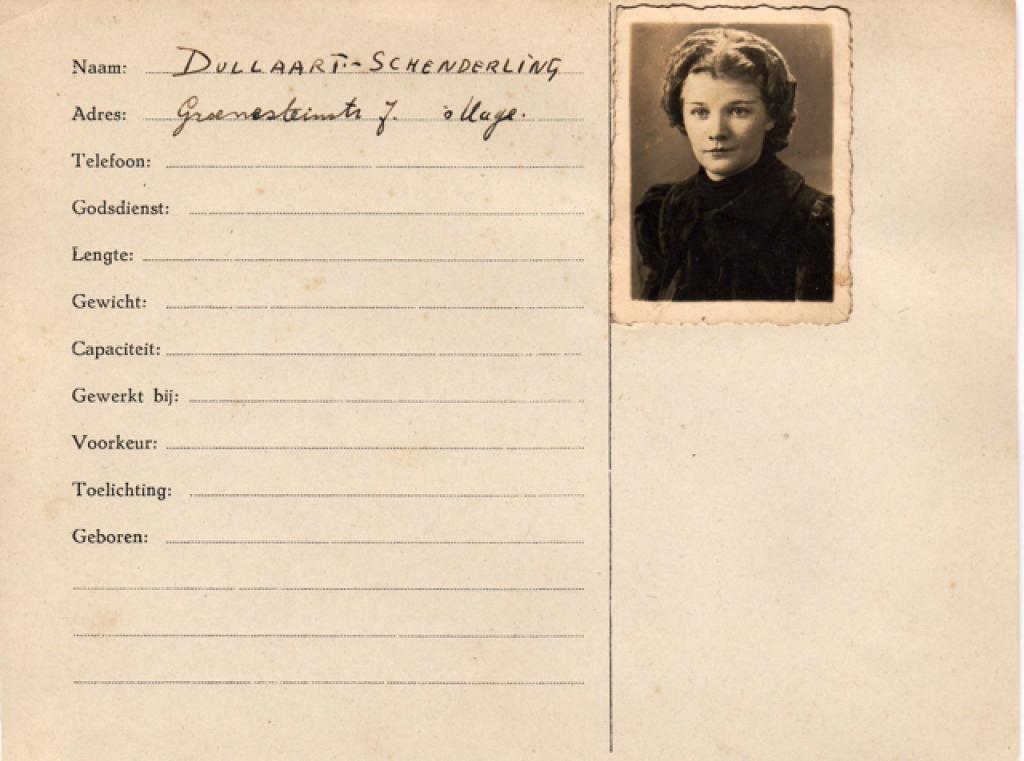 Naam: DULLAART.-SCHENDERLING
Adres: Groenesteinstr 7. 's Hage.
Telefoon:
Godsdienst:
Lengte:
Gewicht:
Capaciteit:
Gewerkt bij:
Voorkeur:
Toelichting:
Geboren: